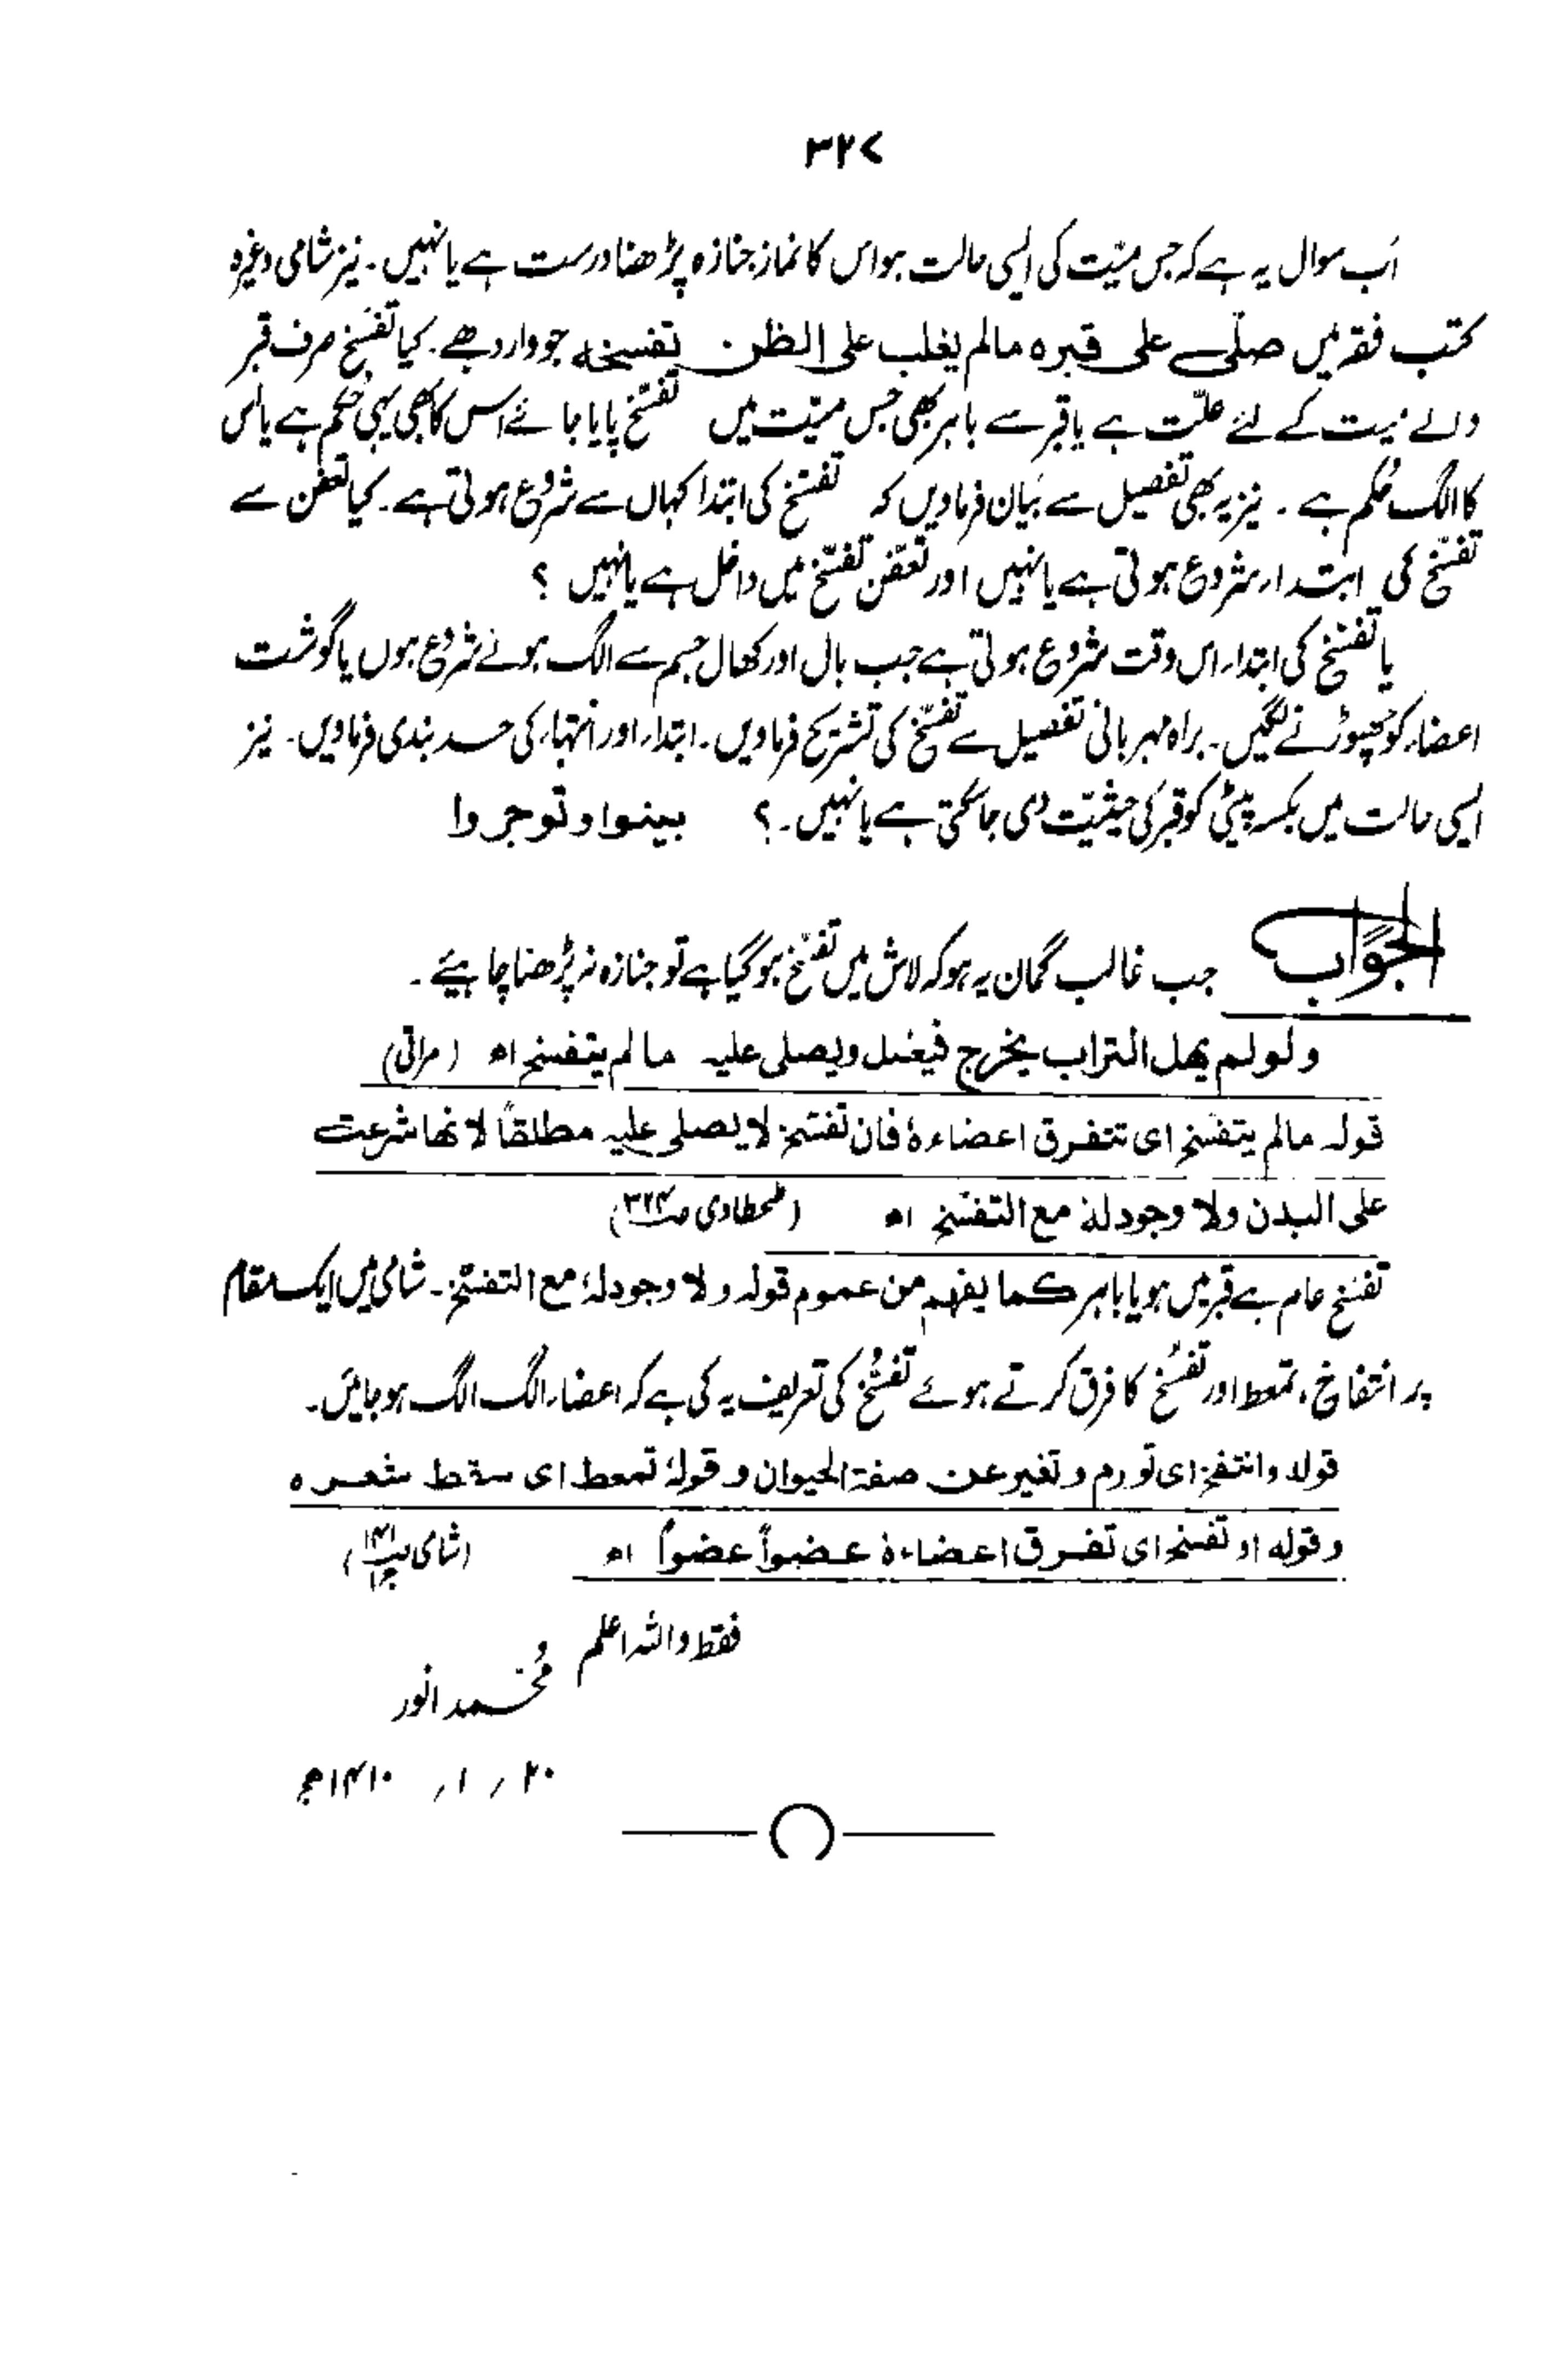 ۳۲۷
اَب سوال یہ ہے کہ جس میّت کی ایسی حالت ہو اس کا نماز جنازہ پڑھنا درست ہے یا نہیں۔ نیز شامی وغیرہ
کتب فقہ میں صلّی علی قبره مالم یغلب علی الظن تفسخه جو وارد ہے۔ کیا تفسّخ صرف قبر
والے میت کے لئے علّت ہے یا قبر سے باہر بھی جس میّت میں تفسّخ پایا جائے اس کا بھی یہی حُکم ہے یا اس
کا الگ حُکم ہے ۔ نیز یہ بھی تفصیل سے بَیان فرما دیں کہ تفسّخ کی ابتدا کہاں سے شروع ہوتی ہے۔ کیا تعفن سے
تفسّخ کی ابتداء شروع ہوتی ہے یا نہیں اور تعفّن تفسّخ میں داخل ہے یا نہیں ؟
یا تفسّخ کی ابتداء اس وقت شروع ہوتی ہے جب بال اور کھال جسم سے الگ ہونے شروع ہوں یا گوشت
اعضاء کو چھوڑنے لگیں۔ براہ مہربانی تفصیل سے تفسّخ کی تشریح فرما دیں۔ ابتداء اور انتہاء کی حد بندی فرما دیں۔ نیز
ایسی حالت میں بکسہ پیٹی کو قبر کی حیثیّت دی جا سکتی ہے یا نہیں۔؟ بینوا وتوجروا
الجوَاب جب غالب گمان یہ ہو کہ لاش میں تفسّخ ہو گیا ہے تو جنازہ نہ پڑھنا چاہیئے ۔
ولو لم یهل التراب یخرج فیغسل ویصلی علیه مالم یتفسخ اھ (مراقی)
قوله مالم یتفسّخ ای تتفرق اعضاءهٗ فان تفسّخ لا یصلی علیه مطلقاً لانها شرعت
علی البدن ولا وجود لهٗ مع التفسّخ اھ (طحطاوی ص۳۲۴)
تفسّخ عام ہے قبر میں ہو یا باہر کما یفهم من عموم قوله ولا وجود لهٗ مع التفسّخ۔ شامی میں ایک مقام
پر انتفاخ ، تمعط اور تفسُّخ کا فرق کرتے ہوئے تفسُّخ کی تعریف یہ کی ہے کہ اعضاء الگ الگ ہو جائیں۔
قوله وانتفخ ای تورم وتغیر عن صفة الحیوان وقولهٗ تمعط ای سقط شعره
وقوله او تفسّخ ای تفرق اعضاءهٗ عضواً عضواً اھ (شامی)
فقط واللہ اعلم
مُحمّد انور
۲۰ / ۱ / ۱۴۱۰ھ